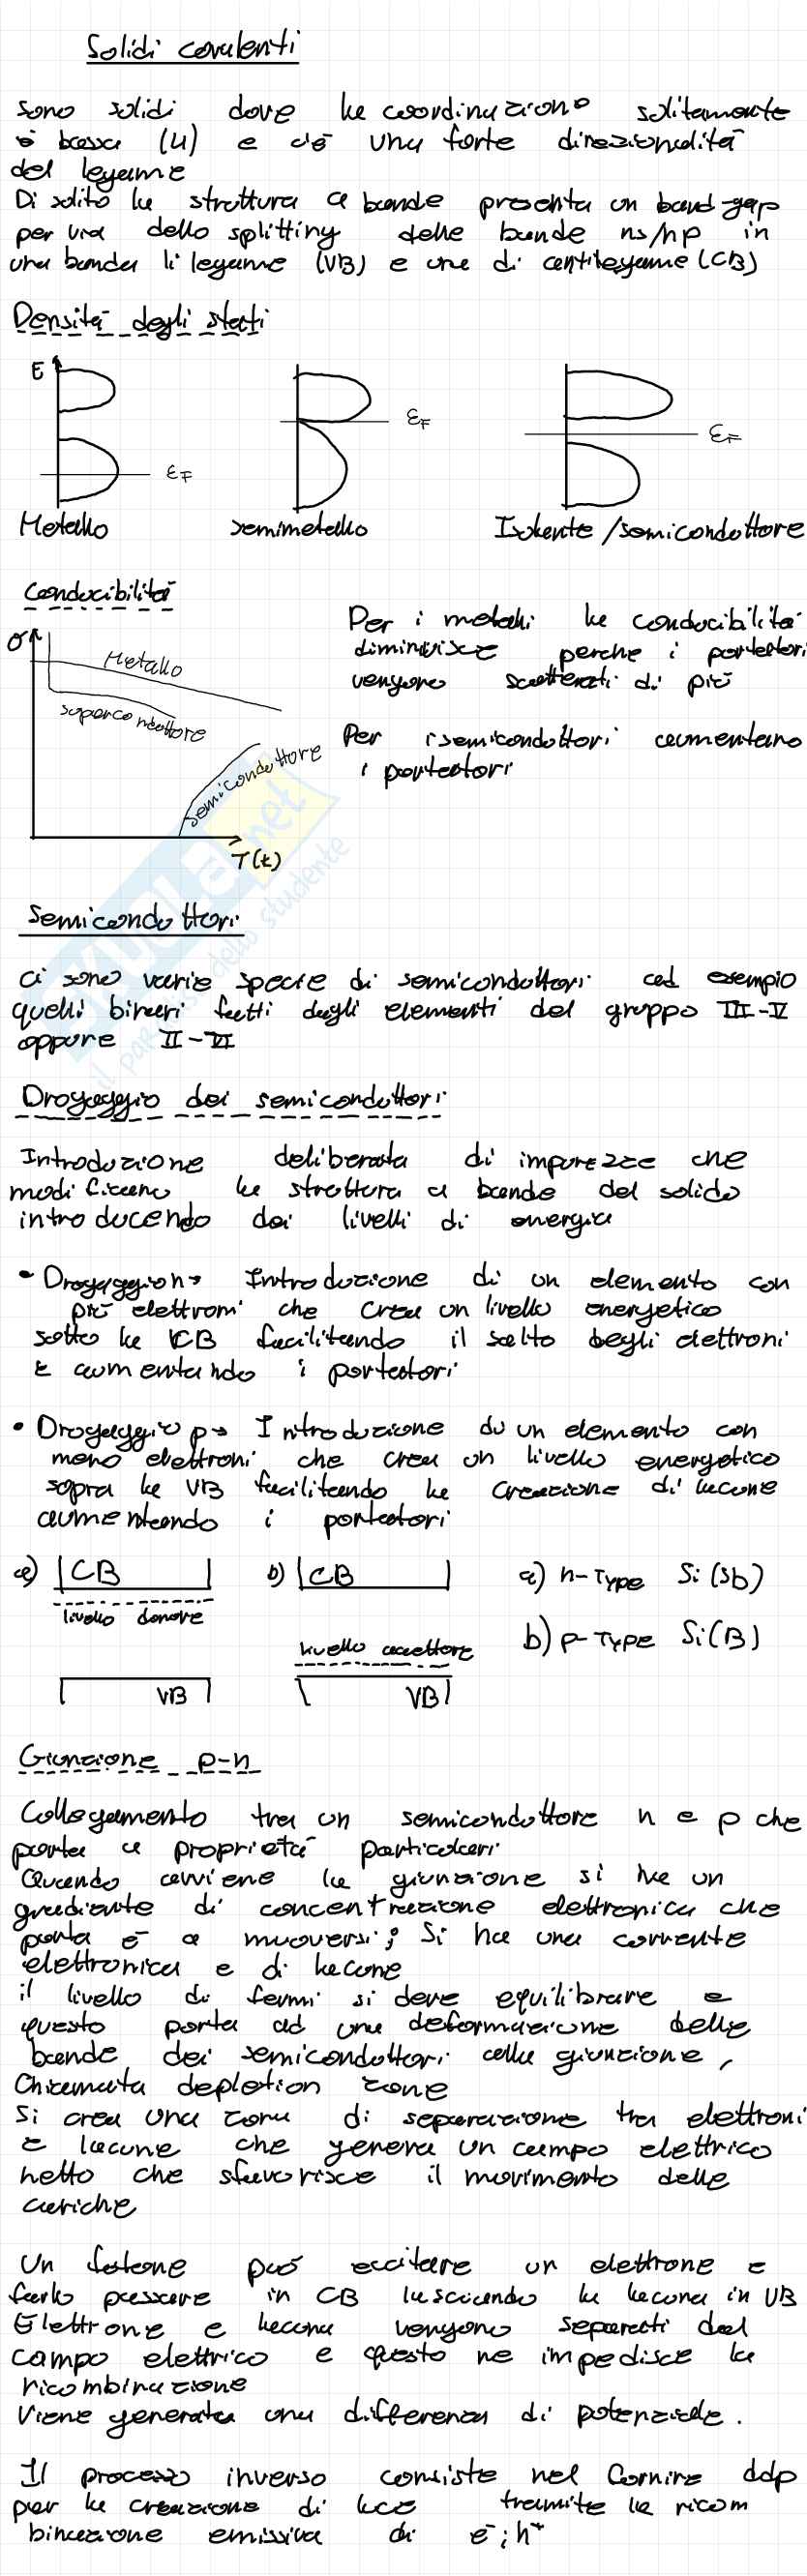 Solidi covalenti
Sono solidi dove la coordinazione solitamente
è bassa (4) e c'è una forte direzionalità
del legame
Di solito la struttura a bande presenta un band-gap
per via dello splitting delle bande ns/np in
una banda li legame (VB) e una di antilegame (CB)
Densità degli stati
E
εF
εF
εF
Metallo semimetallo Isolante / semiconduttore
Conducibilità
σ
Metallo
superconduttore
semiconduttore
T(t)
Per i metalli la conducibilità
diminuisce perche i portatori
vengono scatterati di più
Per i semiconduttori aumentano
i portatori
Semiconduttori
Ci sono varie specie di semiconduttori ad esempio
quelli binari fatti dagli elementi del gruppo III-V
oppure II-VI
SKUOLA.net
il paradiso dello studente
Drogaggio dei semiconduttori
Introduzione deliberata di impurezze che
modificano la struttura a bande del solido
introducendo dei livelli di energia
• Drogaggio n→ Introduzione di un elemento con
più elettroni che crea un livello energetico
sotto la CB facilitando il salto degli elettroni
e aumentando i portatori
• Drogaggio p→ Introduzione du un elemento con
meno elettroni che crea un livello energetico
sopra la VB facilitando la creazione di lacune
aumentando i portatori
a) CB
livello donore
VB
b) CB
livello accettore
VB
a) n-Type Si(Sb)
b) p-Type Si(B)
Giunzione p-n
Collegamento tra un semiconduttore n e p che
porta a proprietà particolari
Quando avviene la giunzione si ha un
gradiente di concentrazione elettronica che
porta e⁻ a muoversi; Si ha una corrente
elettronica e di lacune
il livello di fermi si deve equilibrare e
questo porta ad una deformazione delle
bande dei semiconduttori alla giunzione,
Chiamata depletion zone
Si crea una zona di separazione tra elettroni
e lacune che genera un campo elettrico
netto che sfavorisce il movimento delle
cariche
Un fotone può eccitare un elettrone e
farlo passare in CB lasciando la lacuna in VB
Elettrone e lacuna vengono separati dal
campo elettrico e questo ne impedisce la
ricombinazione
Viene generata una differenza di potenziale.
Il processo inverso consiste nel fornire ddp
per la creazione di luce tramite la ricom
binazione emissiva di e⁻; h⁺